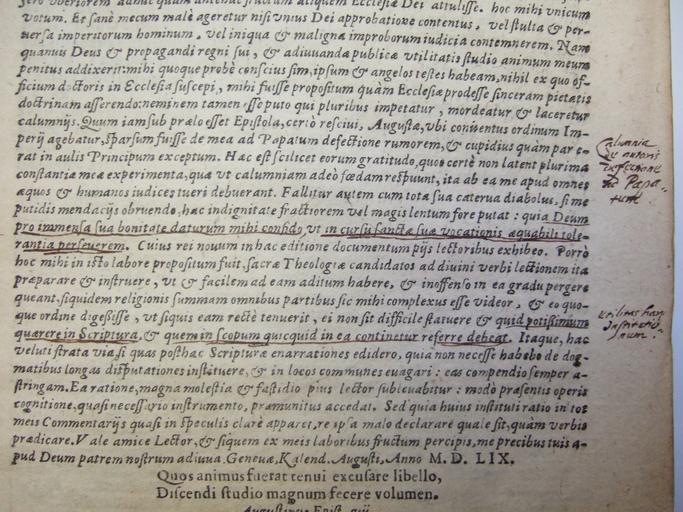 votum. Et sanè mecum malè ageretur nisi vnius Dei approbatione contentus, vel stulta & per-
uersa imperitorum hominum, vel iniqua & maligna improborum iudicia contemnerem. Nam
quanuis Deus & propagandi regni sui, & adiuuandæ publicæ vtilitatis studio animum meum
penitus addixerit: mihi quoque probè conscius sim, ipsum & angelos testes habeam, nihil ex quo of-
ficium doctoris in Ecclesia suscepi, mihi fuisse propositum quàm Ecclesiæ prodesse sinceram pietatis
doctrinam asserendo: neminem tamen esse puto qui pluribus impetatur, mordeatur & laceretur
calumnijs. Quum iam sub prælo esset Epistola, certò resciui, Augustæ, vbi conuentus ordinum Im-
perij agebatur, sparsum fuisse de mea ad Papatum defectione rumorem, & cupidius quàm par e-
rat in aulis Principum exceptum. Hæc est scilicet eorum gratitudo, quos certè non latent plurima
constantiæ meæ experimenta, quæ vt calumniam adeò fœdam respuunt, ita ab ea me apud omnes
æquos & humanos iudices tueri debuerant. Fallitur autem cum tota sua caterua diabolus, si me
putidis mendacijs obruendo, hac indignitate fractiorem vel magis lentum fore putat: quia Deum
pro immensa sua bonitate daturum mihi confido, vt in cursu sanctæ suæ vocationis æquabili tole-
rantia perseuerem. Cuius rei nouum in hac editione documentum pijs lectoribus exhibeo. Porrò
hoc mihi in isto labore propositum fuit, sacræ Theologiæ candidatos ad diuini verbi lectionem ita
præparare & instruere, vt & facilem ad eam aditum habere, & inoffenso in ea gradu pergere
queant, siquidem religionis summam omnibus partibus sic mihi complexus esse videor, & eo quo-
que ordine digessisse, vt siquis eam rectè tenuerit, ei non sit difficile statuere & quid potissimum
quærere in Scriptura, & quem in scopum quicquid in ea continetur referre debeat. Itaque, hac
veluti strata via si quas posthac Scripturæ enarrationes edidero, quia non necesse habebo de dog-
matibus longas disputationes instituere, & in locos communes euagari: eas compendio semper a-
stringam. Ea ratione, magna molestia & fastidio pius lector subleuabitur: modò præsentis operis
cognitione, quasi necessario instrumento, præmunitus accedat. Sed quia huius instituti ratio in tot
meis Commentarijs quasi in speculis clarè apparet, re ipsa malo declarare quale sit, quàm verbis
prædicare. Vale amice Lector, & siquem ex meis laboribus fructum percipis, me precibus tuis a-
pud Deum patrem nostrum adiuua. Geneuæ, Kalend. Augusti, Anno M. D. LIX.
Quos animus fuerat tenui excusare libello,
Discendi studio magnum fecere volumen.
Calumnia
de autoris
defectione
ad Papa-
tum
Vtilitas har.
Institutio
num.